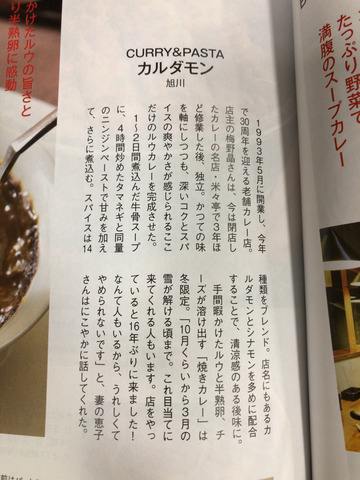 CURRY&PASTA
カルダモン
旭川
1993年5月に開業し、今年
で30周年を迎える老舗カレー店。
店主の梅野晶さんは、今は閉店し
たカレーの名店・米々亭で3年ほ
ど修業した後、独立。かつての味
を軸にしつつも、深いコクとスパ
イスの爽やかさが感じられるここ
だけのルウカレーを完成させた。
1〜2日間煮込んだ牛骨スープ
に、4時間炒めたタマネギと同量
のニンジンペーストで甘みを加え
て、さらに煮込む。スパイスは14
種類をブレンド。店名にもあるカ
ルダモンとシナモンを多めに配合
することで、清涼感のある後味に。
手間暇かけたルウと半熟卵、チ
ーズが溶け出す「焼きカレー」は
冬限定。「10月くらいから3月の
雪が解ける頃まで。これ目当てに
来てくれる人もいます。店をやっ
ていると16年ぶりに来ました！
なんて人もいるから、うれしくて
やめられないです」と、妻の恵子
さんはにこやかに話してくれた。
たっぷり野菜で
満腹のスープカレー
かけたルウの旨さと
り半熟卵に感動